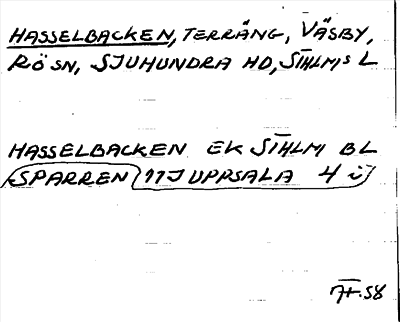 HASSELBACKEN, TERRÄNG, VÄSBY,
RÖ SN, SJUHUNDRA HD, STHLMS L
HASSELBACKEN EK STHLM BL
SPARREN 11J UPPSALA 4 i
58